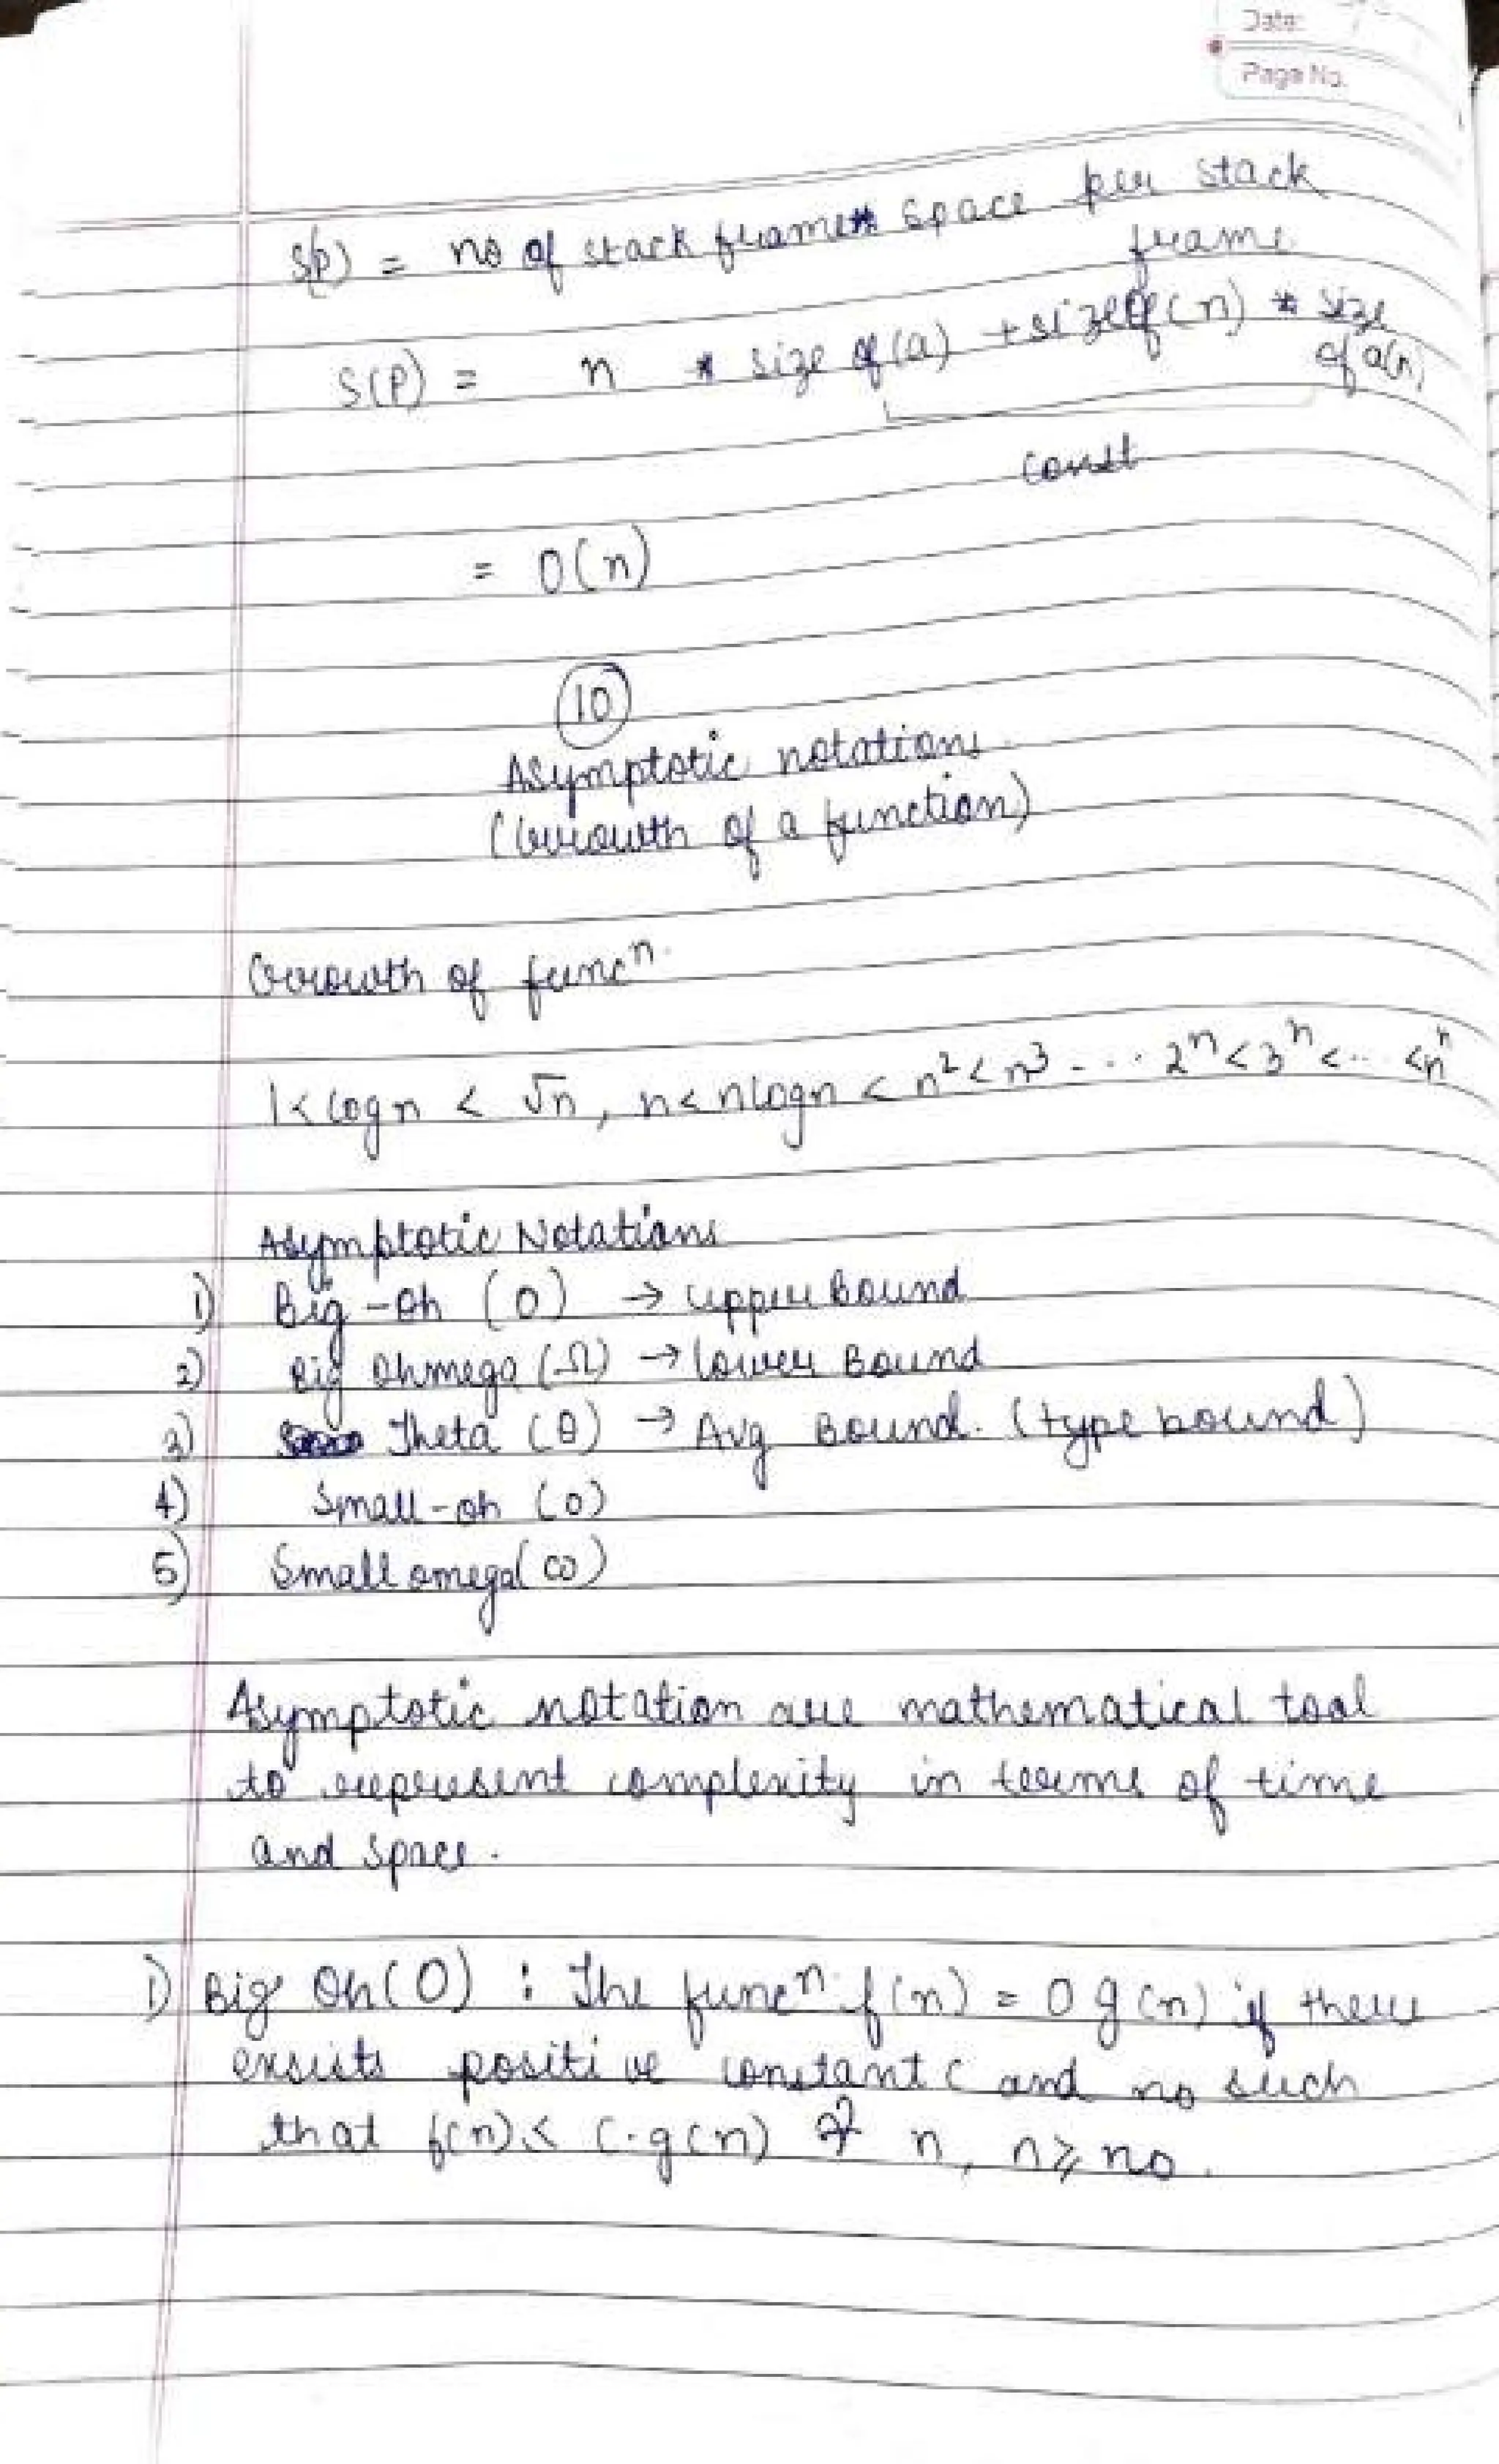 Date:
Page No.
S(P) = no of stack frame * space per stack
frame
S(P) = n * size of (a) + sizeof(n) * size
of a(n)
const
= O(n)
10
Asymptotic notations.
(Growth of a function)
Growth of funcⁿ.
1 < log n < √n, n < nlogn < n² < n³ - - . . 2ⁿ < 3ⁿ < .. < nⁿ
Asymptotic Notations
1) Big-Oh (O) → upper bound
2) Big Ohmega (Ω) → lower Bound
3) Theta (θ) → Avg Bound. (type bound)
4) Small-oh (o)
5) Small omega (ω)
Asymptotic notation are mathematical tool
to represent complexity in terms of time
and space.
1) Big Oh (O) : The funcⁿ. f(n) = O g(n) if there
exsists positive constant C and no such
that f(n) ≤ C.g(n) ∀ n, n ≥ no.